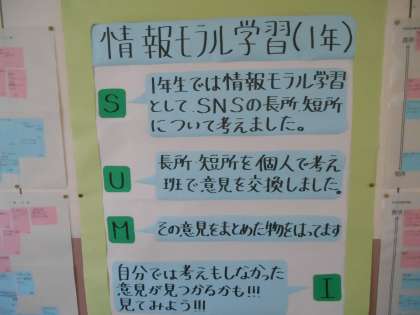 情報モラル学習(1年)
S
1年生では情報モラル学習
として SNSの長所 短所
について考えました。
U
長所 短所を個人で考え
班で意見を交換しました。
M
その意見をまとめた物をはってます
自分では考えもしなかった
意見が見つかるかも!!!
見てみよう!!!
I